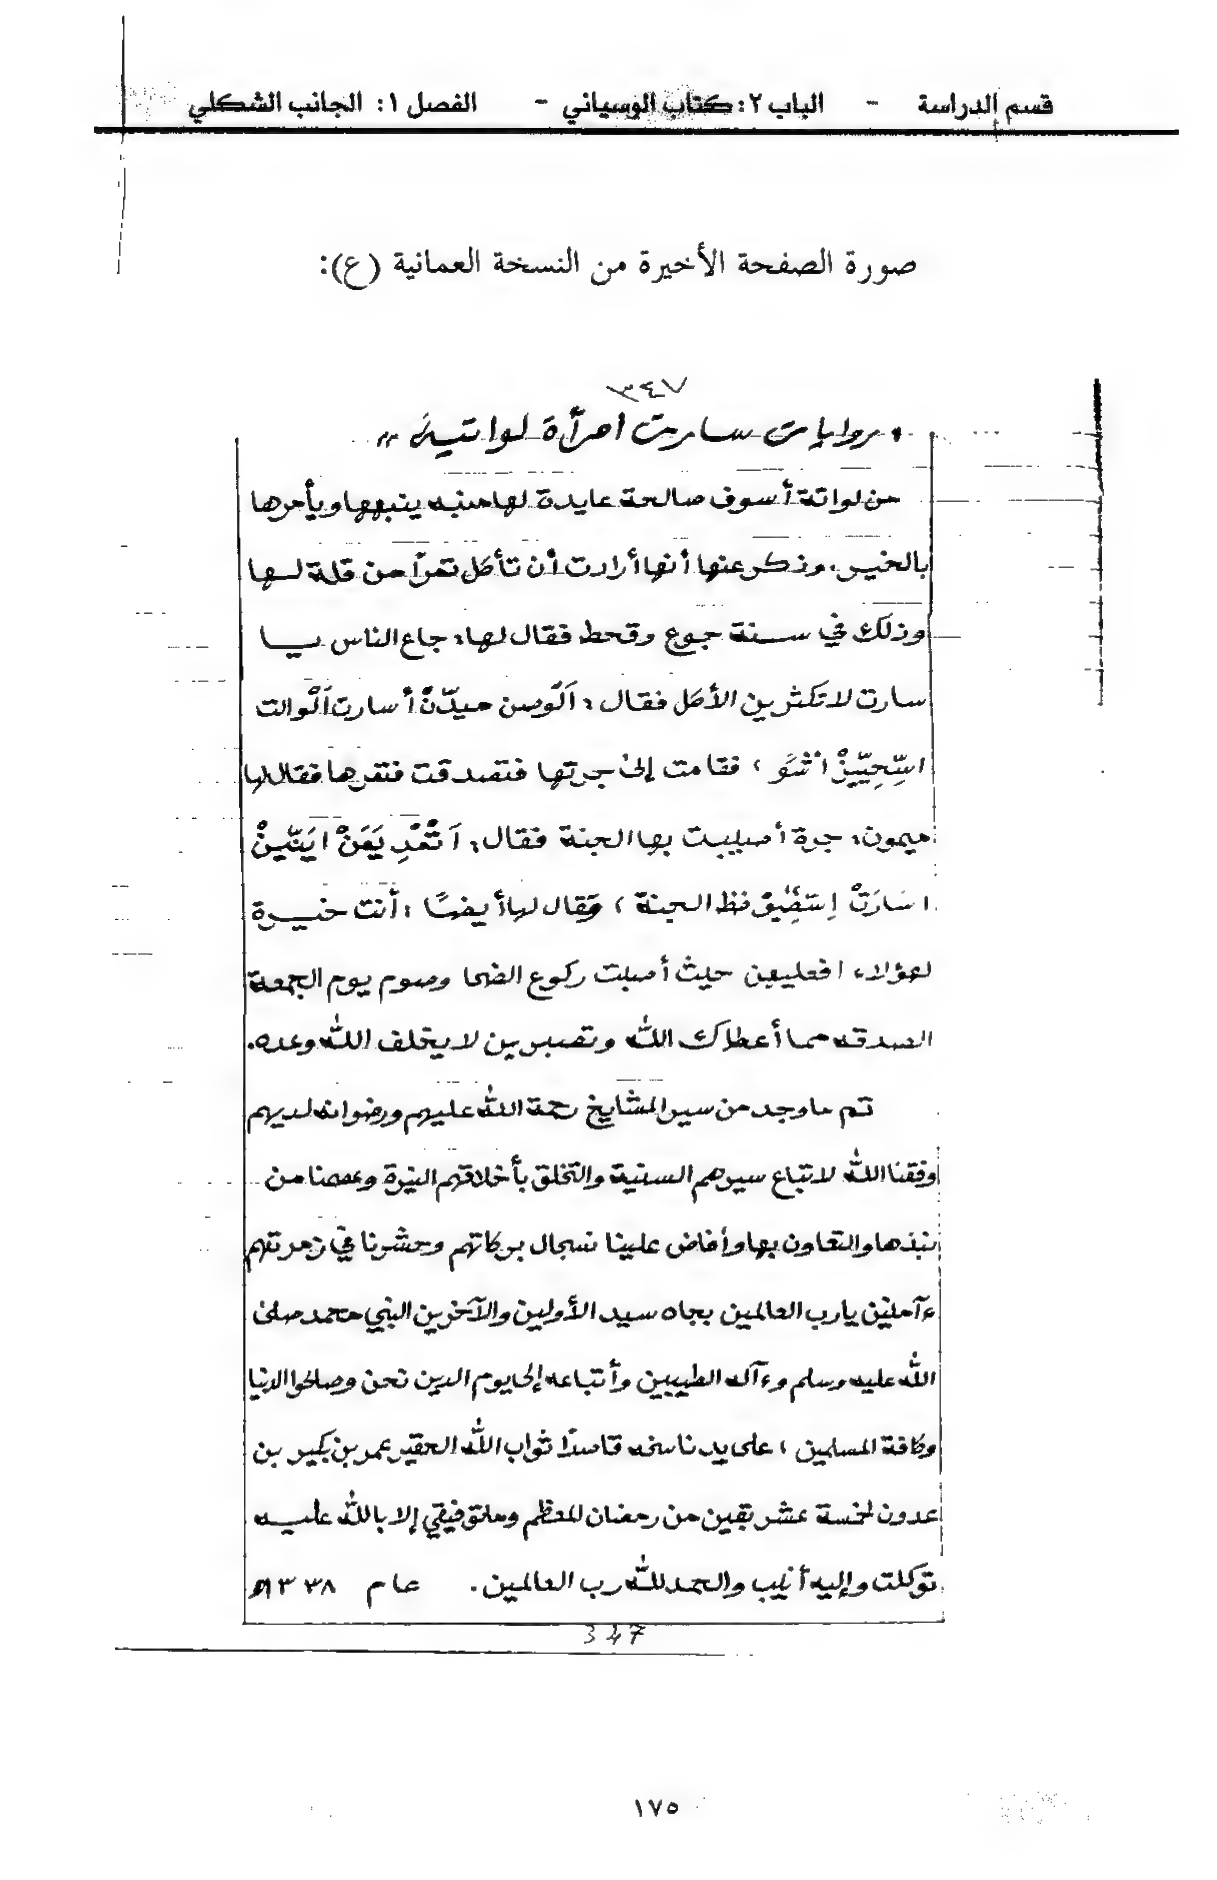 قسم الدراسة - الباب ٢: كتاب الوسياني - الفصل ١: الجانب الشكلي
صورة الصفحة الأخيرة من النسخة العمانية (ع):
٣٤٧
« روايات سارت امرأة لواتية »
من لواتة أسوف صالحة عابدة لها منبه ينبهها ويأمرها
بالخير، وذكر عنها أنها أرادت أن تأكل تمرا من قلة لها
وذلك في سنة جوع وقحط فقال لها: جاع الناس يا
سارت لا تكثرين الأكل فقال: أسارت
فقامت إلى جرتها فتصدقت فقال لها
ميمون: جرة أصيبت بها الجنة فقال:
الجنة، وقال لها أيضًا: أنت خيرة
لهؤلاء افعليهن حيث أصبت ركوع الضحا وصوم يوم الجمعة
الصدقه مما أعطاك الله وتصبرين لا يخلف الله وعده.
تم ما وجد من سير المشايخ رحمة الله عليهم ورضوانه لديهم
وفقنا الله لاتباع سيرهم السنية والتخلق بأخلاقهم النيرة وعصمنا من
نبذها والتعاون بها وأفاض علينا سجال بركاتهم وحشرنا في زمرتهم
ءآمين يا رب العالمين بجاه سيد الأولين والآخرين النبي محمد صلى
الله عليه وسلم وءآله الطيبين وأتباعه إلى يوم الدين نحن وصالحوا الدنيا
وكافة المسلمين، على يد ناسخه قاصدًا ثواب الله الحقير عمر بن بكير بن
عدون لخمسة عشر بقين من رمضان المعظم وما توفيقي إلا بالله عليه
توكلت وإليه أنيب والحمد لله رب العالمين. عام ١٣٣٨هـ
347
١٧٥